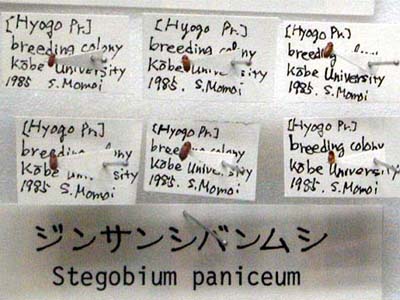 [Hyogo Pr.]
breeding colony
Kobe University
1985 S.Momoi
[Hyogo Pr.]
breeding colony
Kobe University
1985. S.Momoi
[Hyogo Pr.]
breeding
Kobe University
1985. S.Momoi
[Hyogo Pr.]
breeding colony
Kobe University
1985 S.Momoi
[Hyogo Pr.]
breeding colony
Kobe University
1985. S.Momoi
[Hyogo Pr.]
breeding colony
Kobe University
1985. S.Momoi
ジンサンシバンムシ
Stegobium paniceum